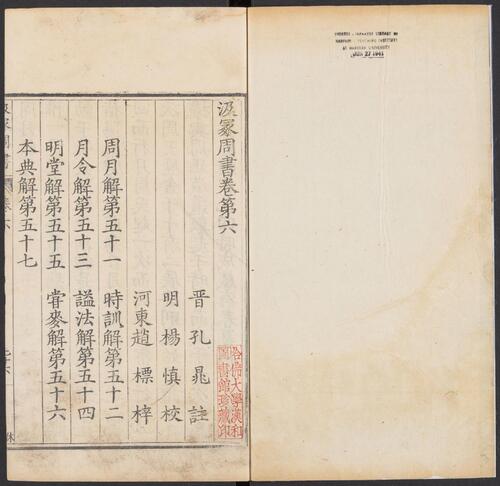 汲冢周書卷第六
晉孔晁註
明楊慎校
河東趙標梓
周月解第五十一 時訓解第五十二
月令解第五十三 謚法解第五十四
明堂解第五十五 甞麥解第五十六
本典解第五十七
汲冢周書 卷六
哈佛大學漢和
圖書館珍藏印
CHINESE-JAPANESE LIBRARY OF
AT HARVARD UNIVERSITY
JUN 27 1941